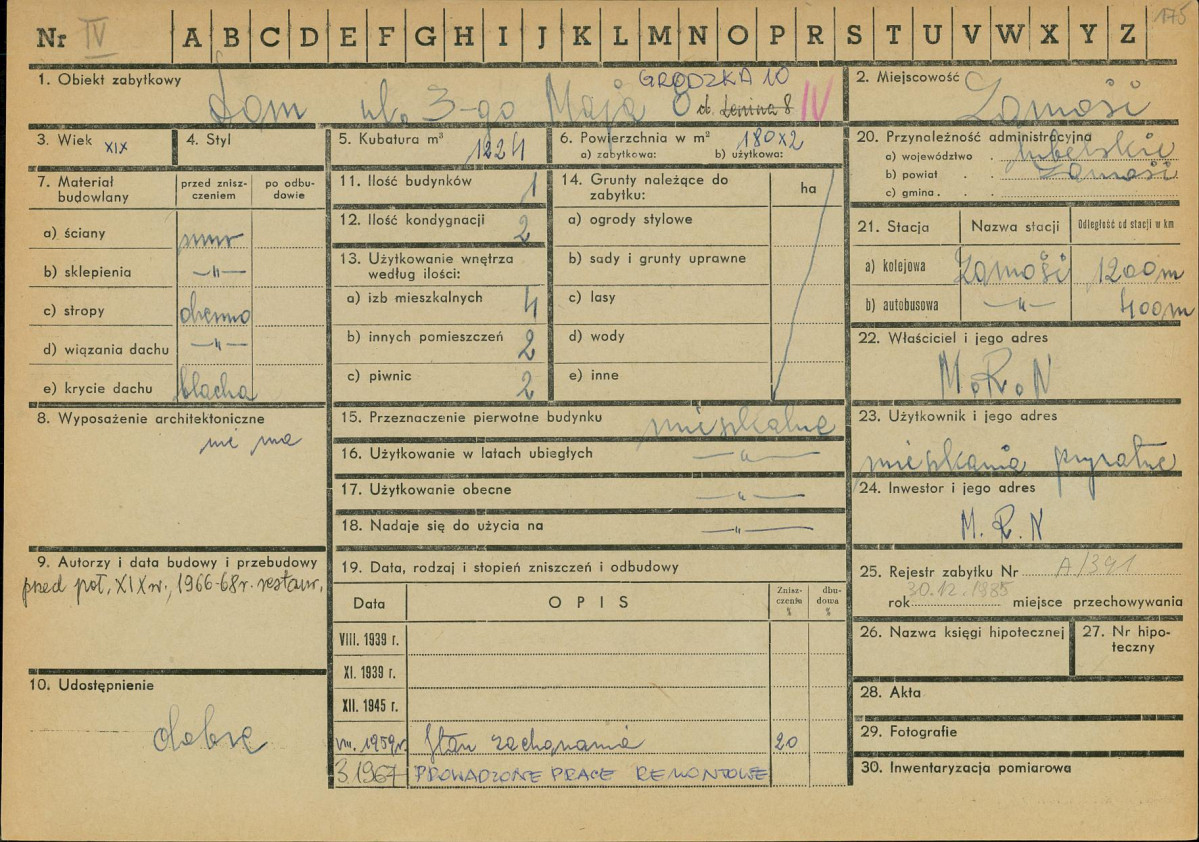 Nr IV A B C D E F G H I J K L M N O P R S T U V W X Y Z 175
1. Obiekt zabytkowy
Dom ul. 3-go Maja 8 ul. Lenina 8 IV
GRODZKA 10
2. Miejscowość
Zamość
3. Wiek XIX
4. Styl
5. Kubatura m³ 1224
6. Powierzchnia w m² 180x2
a) zabytkowa: b) użytkowa:
20. Przynależność administracyjna
a) województwo . lubelskie
b) powiat . . Zamość
c) gmina . . .
7. Materiał budowlany
przed zniszczeniem
po odbudowie
a) ściany mur
b) sklepienia —"—
c) stropy drewno
d) wiązania dachu —"—
e) krycie dachu blacha
8. Wyposażenie architektoniczne
nie ma
9. Autorzy i data budowy i przebudowy
przed poł. XIX w., 1966-68 r. restaur.
10. Udostępnienie
dobre
11. Ilość budynków 1
12. Ilość kondygnacji 2
13. Użytkowanie wnętrza według ilości:
a) izb mieszkalnych 4
b) innych pomieszczeń 2
c) piwnic 2
14. Grunty należące do zabytku:
ha
a) ogrody stylowe
b) sady i grunty uprawne
c) lasy
d) wody
e) inne
15. Przeznaczenie pierwotne budynku mieszkalne
16. Użytkowanie w latach ubiegłych —"—
17. Użytkowanie obecne —"—
18. Nadaje się do użycia na —"—
19. Data, rodzaj i stopień zniszczeń i odbudowy
Data OPIS Zniszczenie % dbudowa %
VIII. 1939 r.
XI. 1939 r.
XII. 1945 r.
VIII. 1959 r. Stan zachowania 20
3 1967 PROWADZONE PRACE REMONTOWE
21. Stacja Nazwa stacji Odległość od stacji w km
a) kolejowa Zamość 1200m
b) autobusowa —"— 400m
22. Właściciel i jego adres
M.R.N
23. Użytkownik i jego adres
mieszkania prywatne
24. Inwestor i jego adres
M.R.N
25. Rejestr zabytku Nr A/391
30.12.1985
rok miejsce przechowywania
26. Nazwa księgi hipotecznej
27. Nr hipoteczny
28. Akta
29. Fotografie
30. Inwentaryzacja pomiarowa